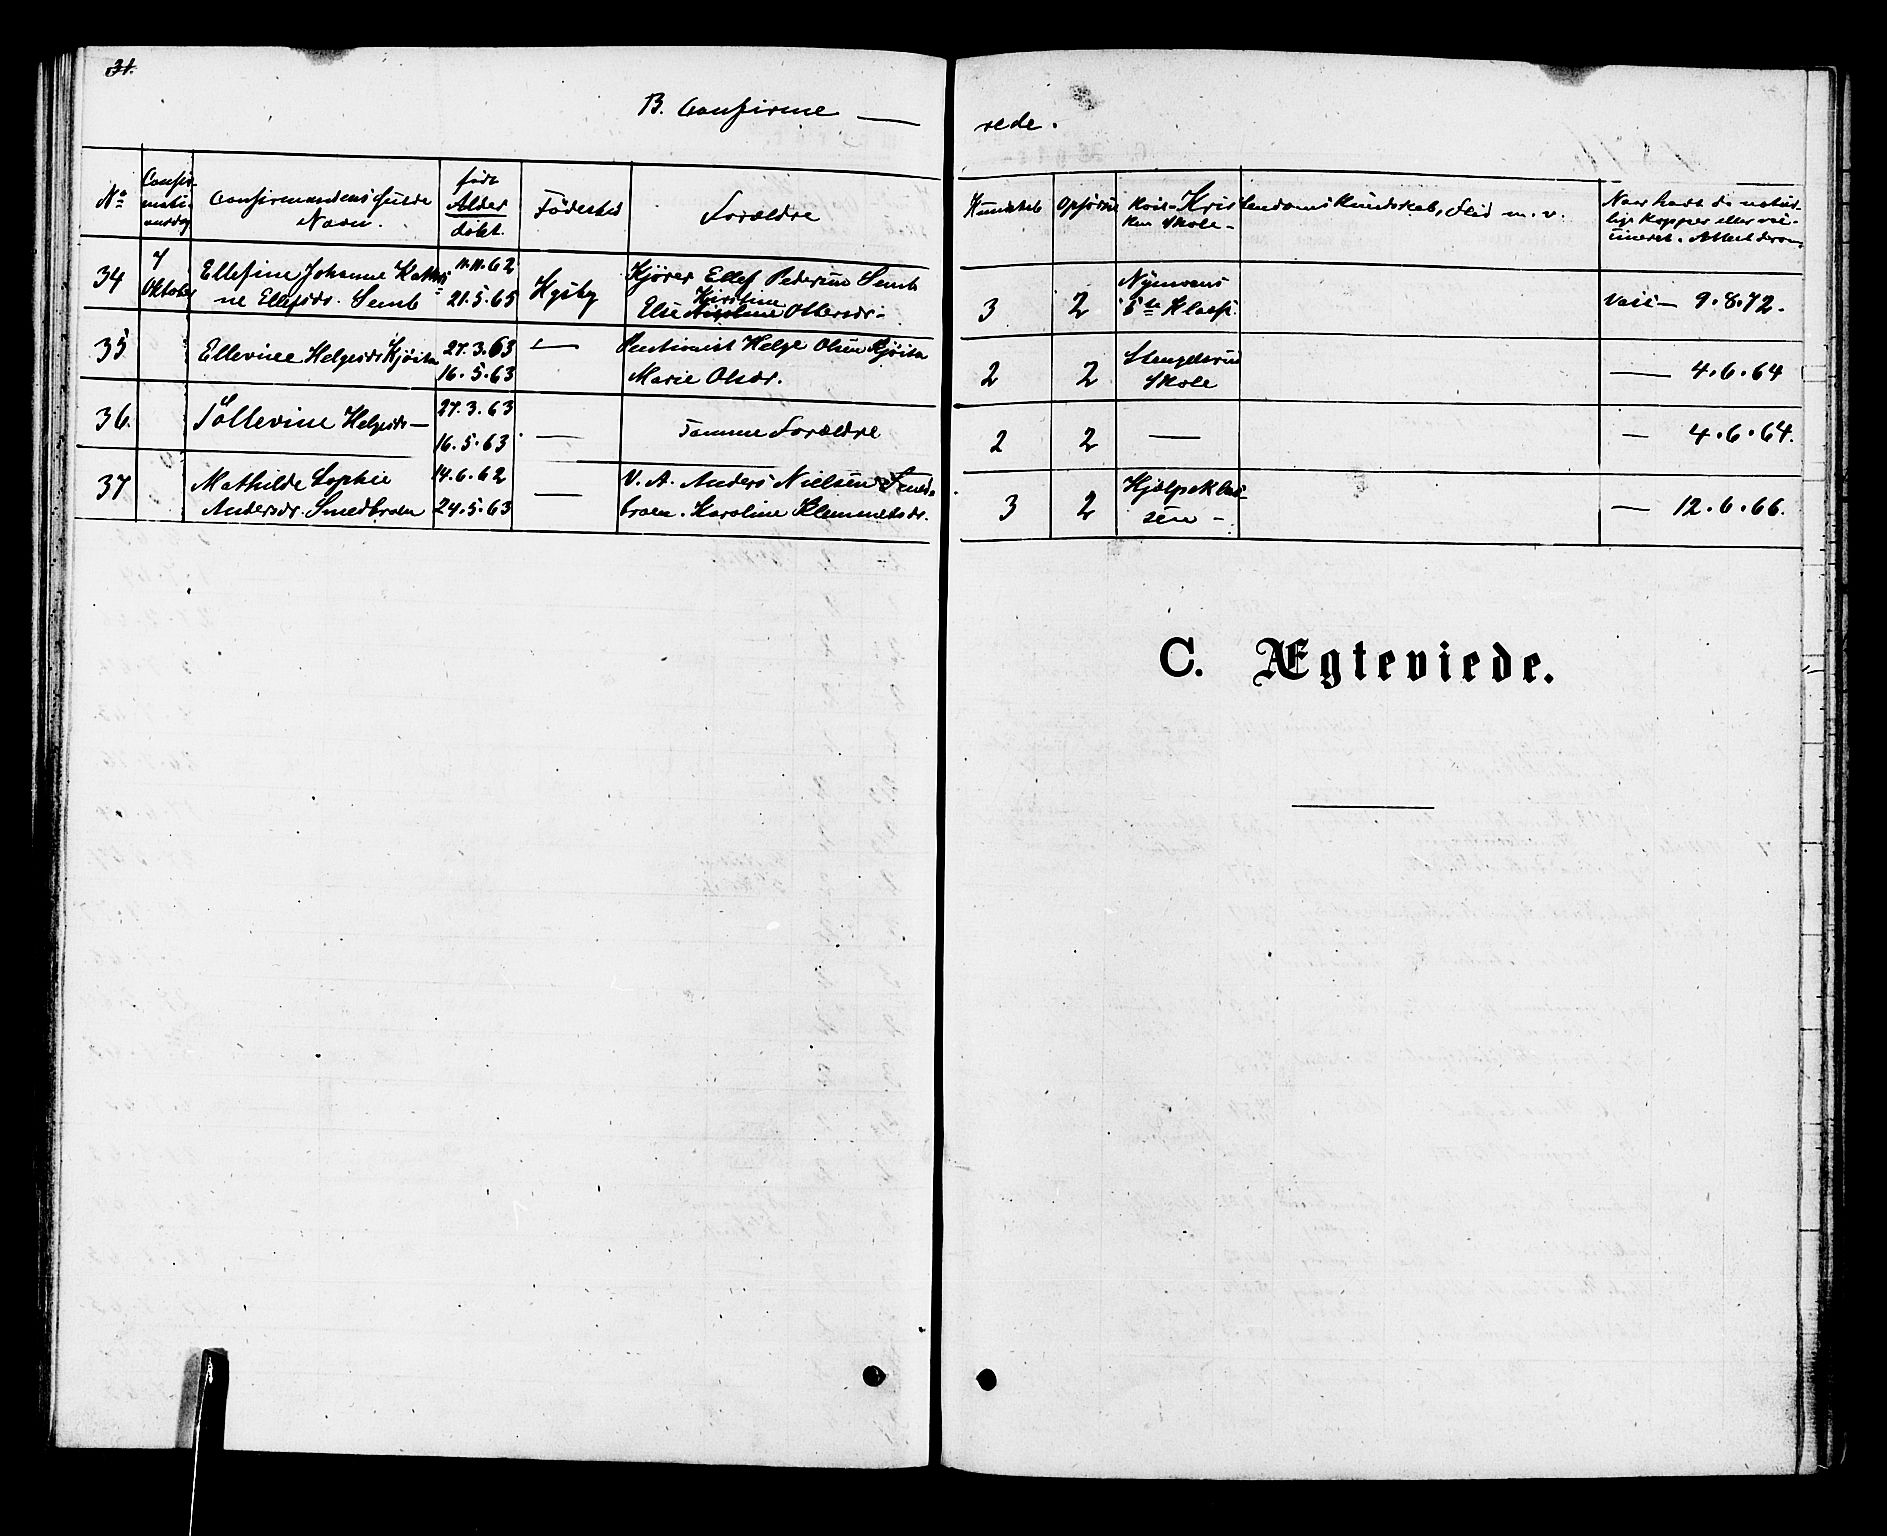 31.
B. Confirme —
rede.
No
Confir-
mati-
onsdag
Confirmandens fulde
Navn.
født
Alder
døbt.
Fødested
Forældre
Kundskab
Opførsel
Kris
tendomskundskab, Flid m. v.
ken Skole -
Naar havt de natur-
lige Kopper eller vac-
cineret. Attest derom
34
7
Oktober
Ellefine Johanne Kathri
ne Ellefsdr. Semb
11.11.62
21.5.65
Kjører Ellef Pedersen Semb
Kirstine
Else Ottersdr.
3
2
5te Klasse.
Vacc — 9.8.72.
35
Ellevine Helgesdr Kjøita
27.3.63
16.5.63
—
Pensionist Helge Olsen Kjøita
Marie Olsdr.
2
2
Stengelsrud
Skole
— 4.6.64
36.
Tollevine Helgesdr —
27.3.63
16.5.63
—
Samme Forældre
2
2
—
— 4.6.64.
37
Mathilde Sophie
Andersdr. Smedbroen
14.6.62
24.5.63
—
V. A. Anders Nielsen Smed-
broen. Karoline Klemmetsdr.
3
2
Hjælpeklas-
sen -
— 12.6.66.
C. Ægteviede.